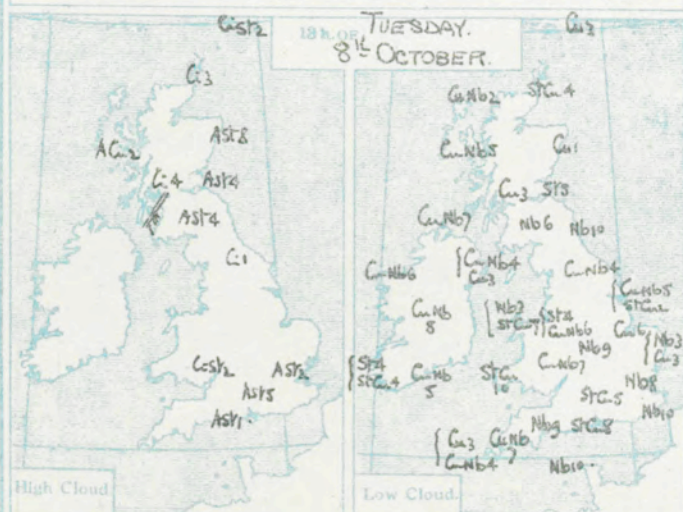 13h. OF TUESDAY.
8th OCTOBER.
CiSt2
Ci3
ACu2
ASt8
Ci4
ASt4
ASt4
Ci1
CiSt2
ASt2
ASt5
ASt1.
High Cloud.
Cu3
CuNb2
StCu4
CuNb5
Cu1
Cu3
St5
CuNb7
Nb6
Nb10
CuNb6
CuNb4
Cu3
CuNb4
CuNb5
StCu2
CuNb
8
Nb3
StCu7
St4
CuNb6
Cu6
Nb9
Nb3
Cu3
St4
StCu4
CuNb
5
StCu
10
CuNb7
Nb8
StCu5
Nb10
Nb9
StCu8
Cu3
CuNb4
CuNb
7
Nb10.
Low Cloud.